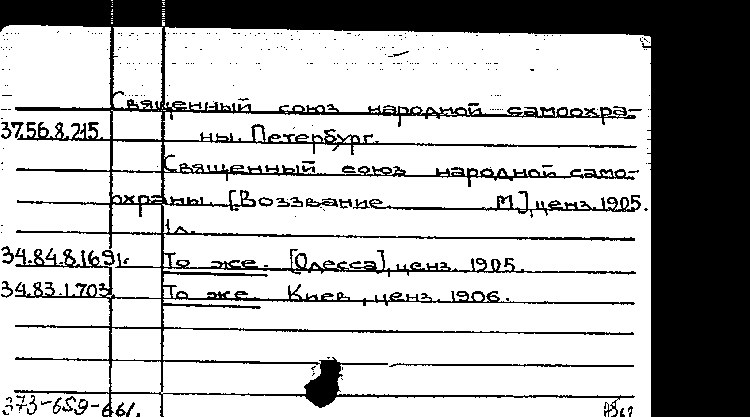 Священный союз народной самоохра-
37.56.8.215. ны. Петербург.
Священный союз народной само-
охраны. [Воззвание. М], ценз. 1905.
1л.
34.84.8.1691. То же. [Одесса], ценз. 1905.
34.83.1.703. То же. Киев, ценз. 1906.
373-659-661.